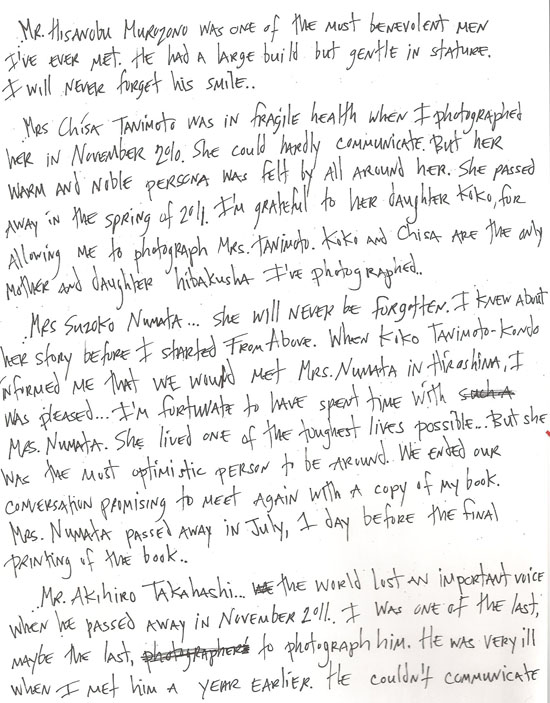 Mr. Hisanobu Murozono was one of the most benevolent men
I've ever met. He had a large build but gentle in stature.
I will never forget his smile..
Mrs Chisa Tanimoto was in fragile health when I photographed
her in November 2010. She could hardly communicate. But her
warm and noble persona was felt by all around her. She passed
away in the spring of 2011. I'm grateful to her daughter Koko, for
allowing me to photograph Mrs. Tanimoto. Koko and Chisa are the only
mother and daughter hibakusha I've photographed..
Mrs Suzoko Numata... she will never be forgotten. I knew about
her story before I started From Above. When Koko Tanimoto-Kondo
informed me that we would met Mrs. Numata in Hiroshima, I
was pleased... I'm fortunate to have spent time with such a
Mrs. Numata. She lived one of the toughest lives possible... But she
was the most optimistic person to be around. We ended our
conversation promising to meet again with a copy of my book.
Mrs. Numata passed away in July, 1 day before the final
printing of the book..
Mr. Akihiro Takahashi... the world lost an important voice
when he passed away in November 2011. I was one of the last,
maybe the last, photographers to photograph him. He was very ill
when I met him a year earlier. He couldn't communicate